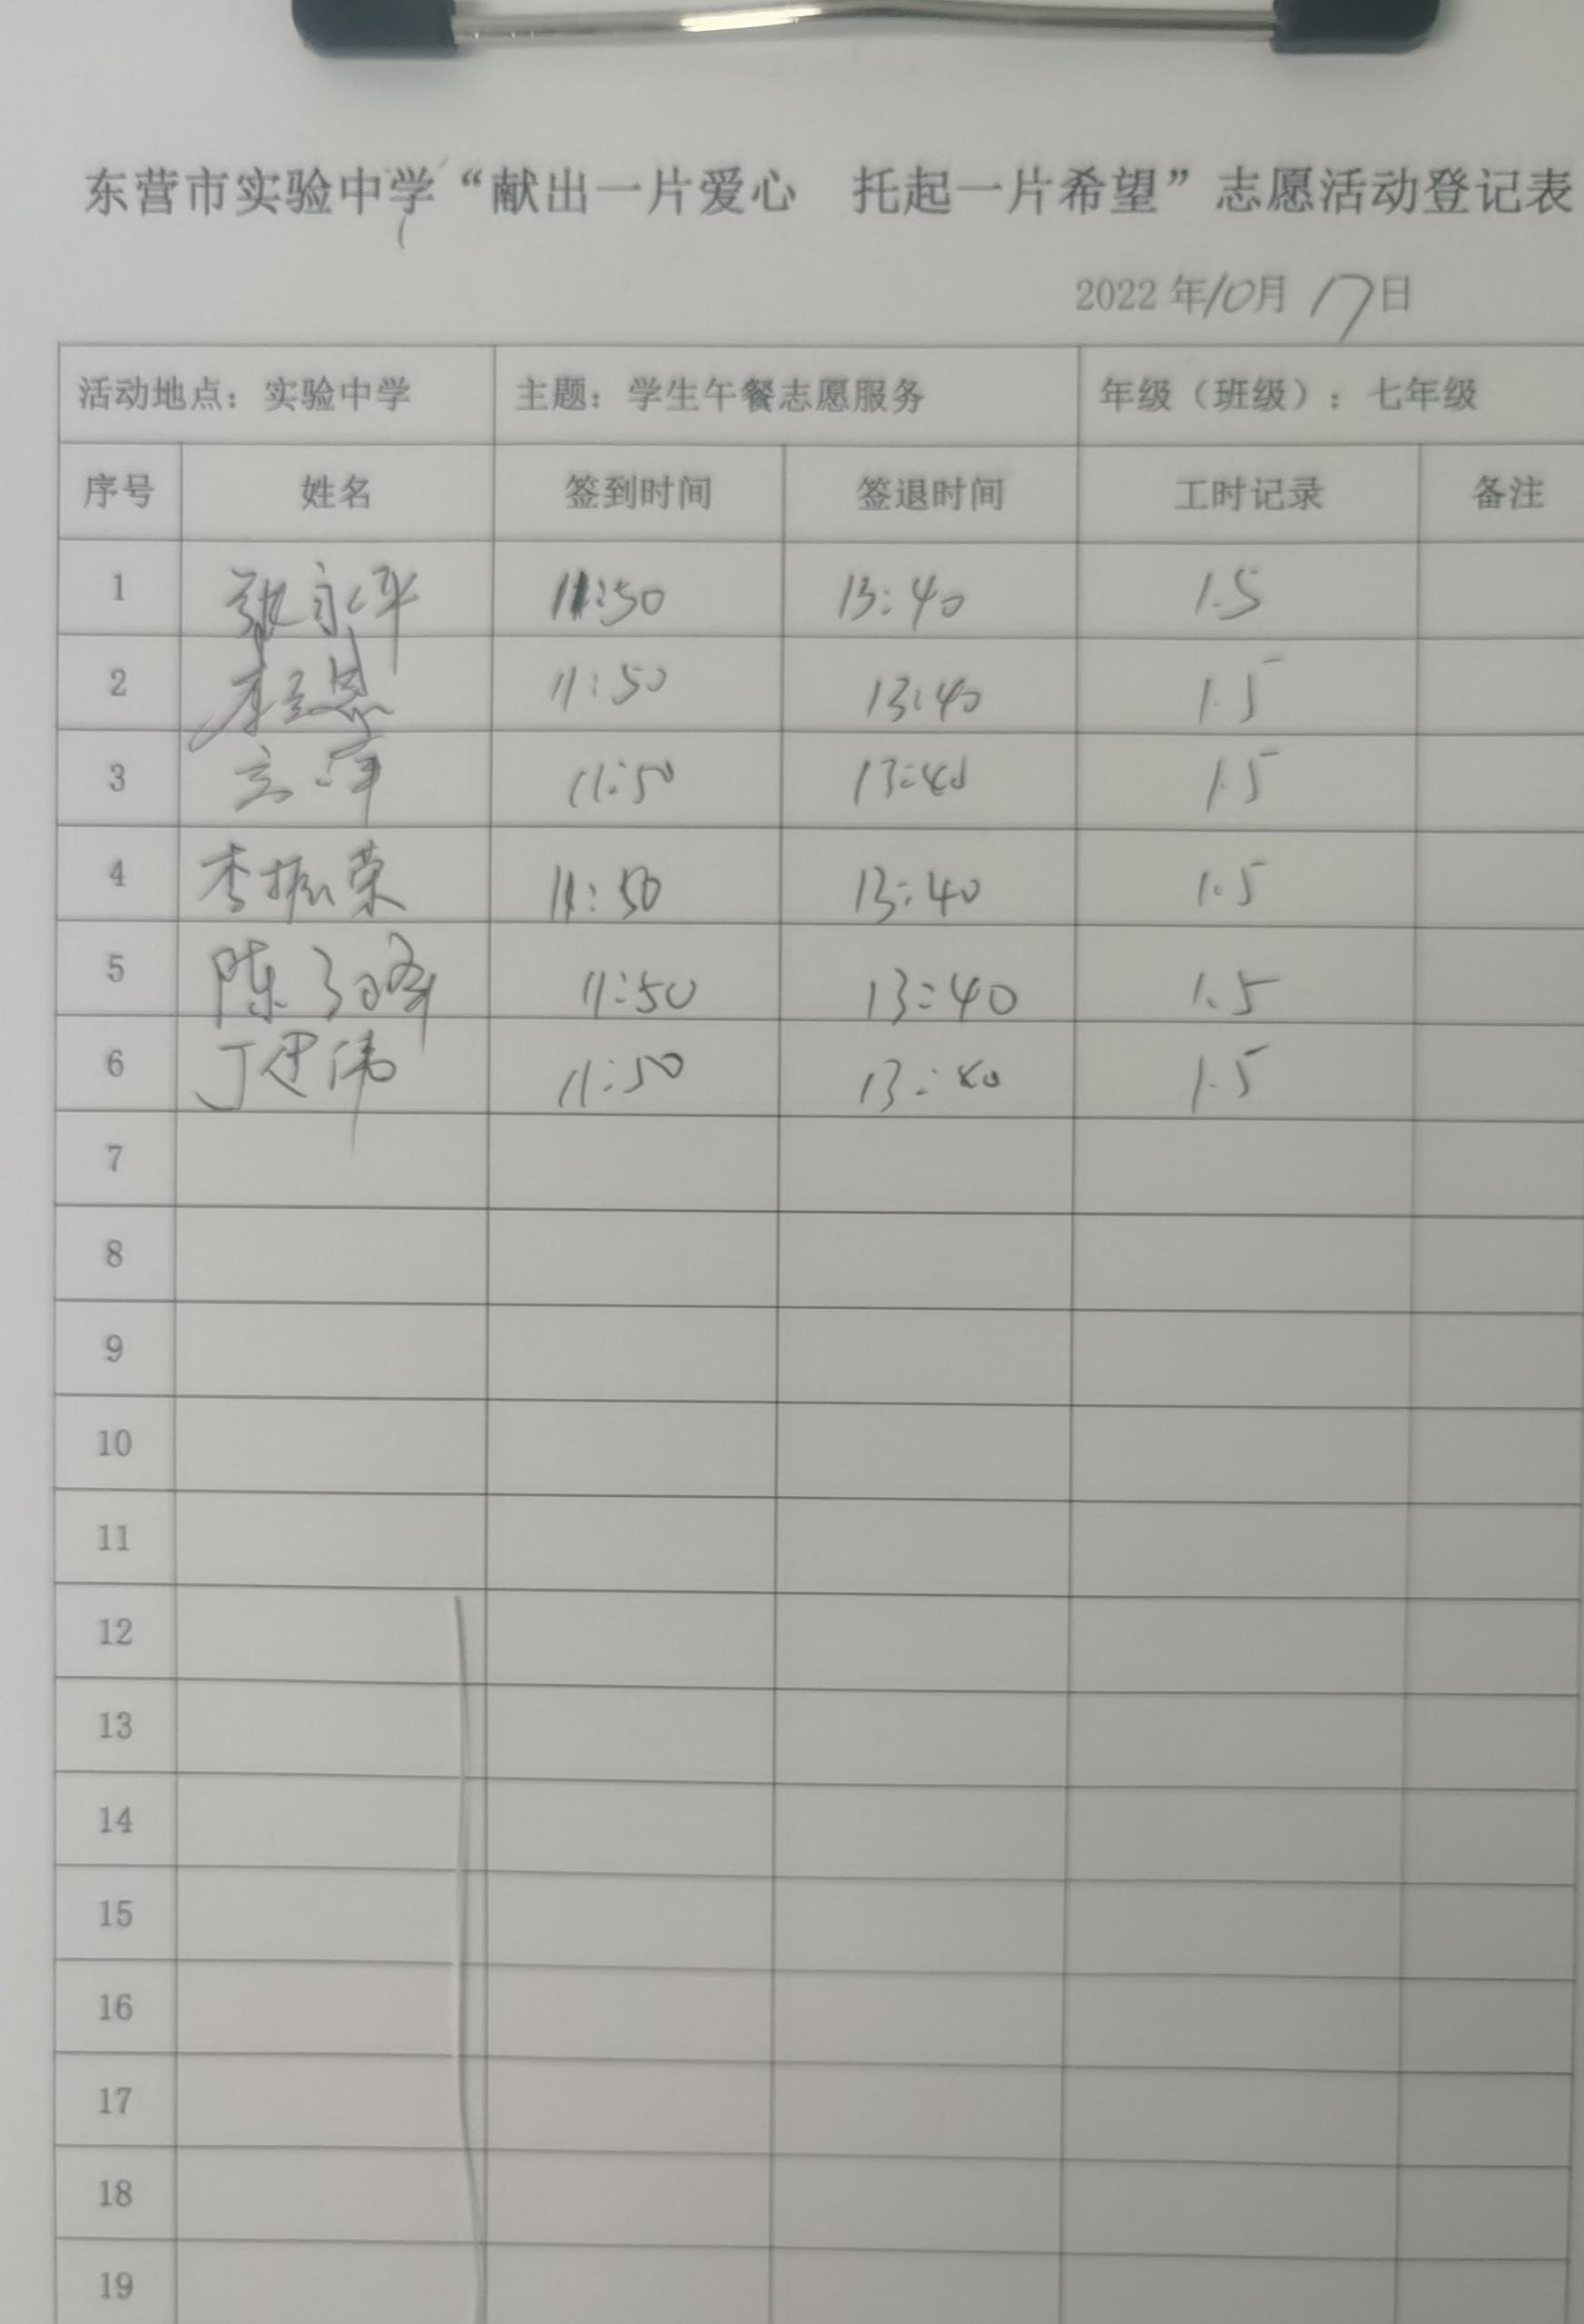 东营市实验中学“献出一片爱心 托起一片希望”志愿活动登记表
2022年10月17日
活动地点：实验中学 主题：学生午餐志愿服务 年级（班级）：七年级
序号 姓名 签到时间 签退时间 工时记录 备注
1 张永平 11:50 13:40 1.5
2 11:50 13:40 1.5
3 11:50 13:40 1.5
4 李振荣 11:50 13:40 1.5
5 陈 11:50 13:40 1.5
6 丁建伟 11:50 13:40 1.5
7
8
9
10
11
12
13
14
15
16
17
18
19